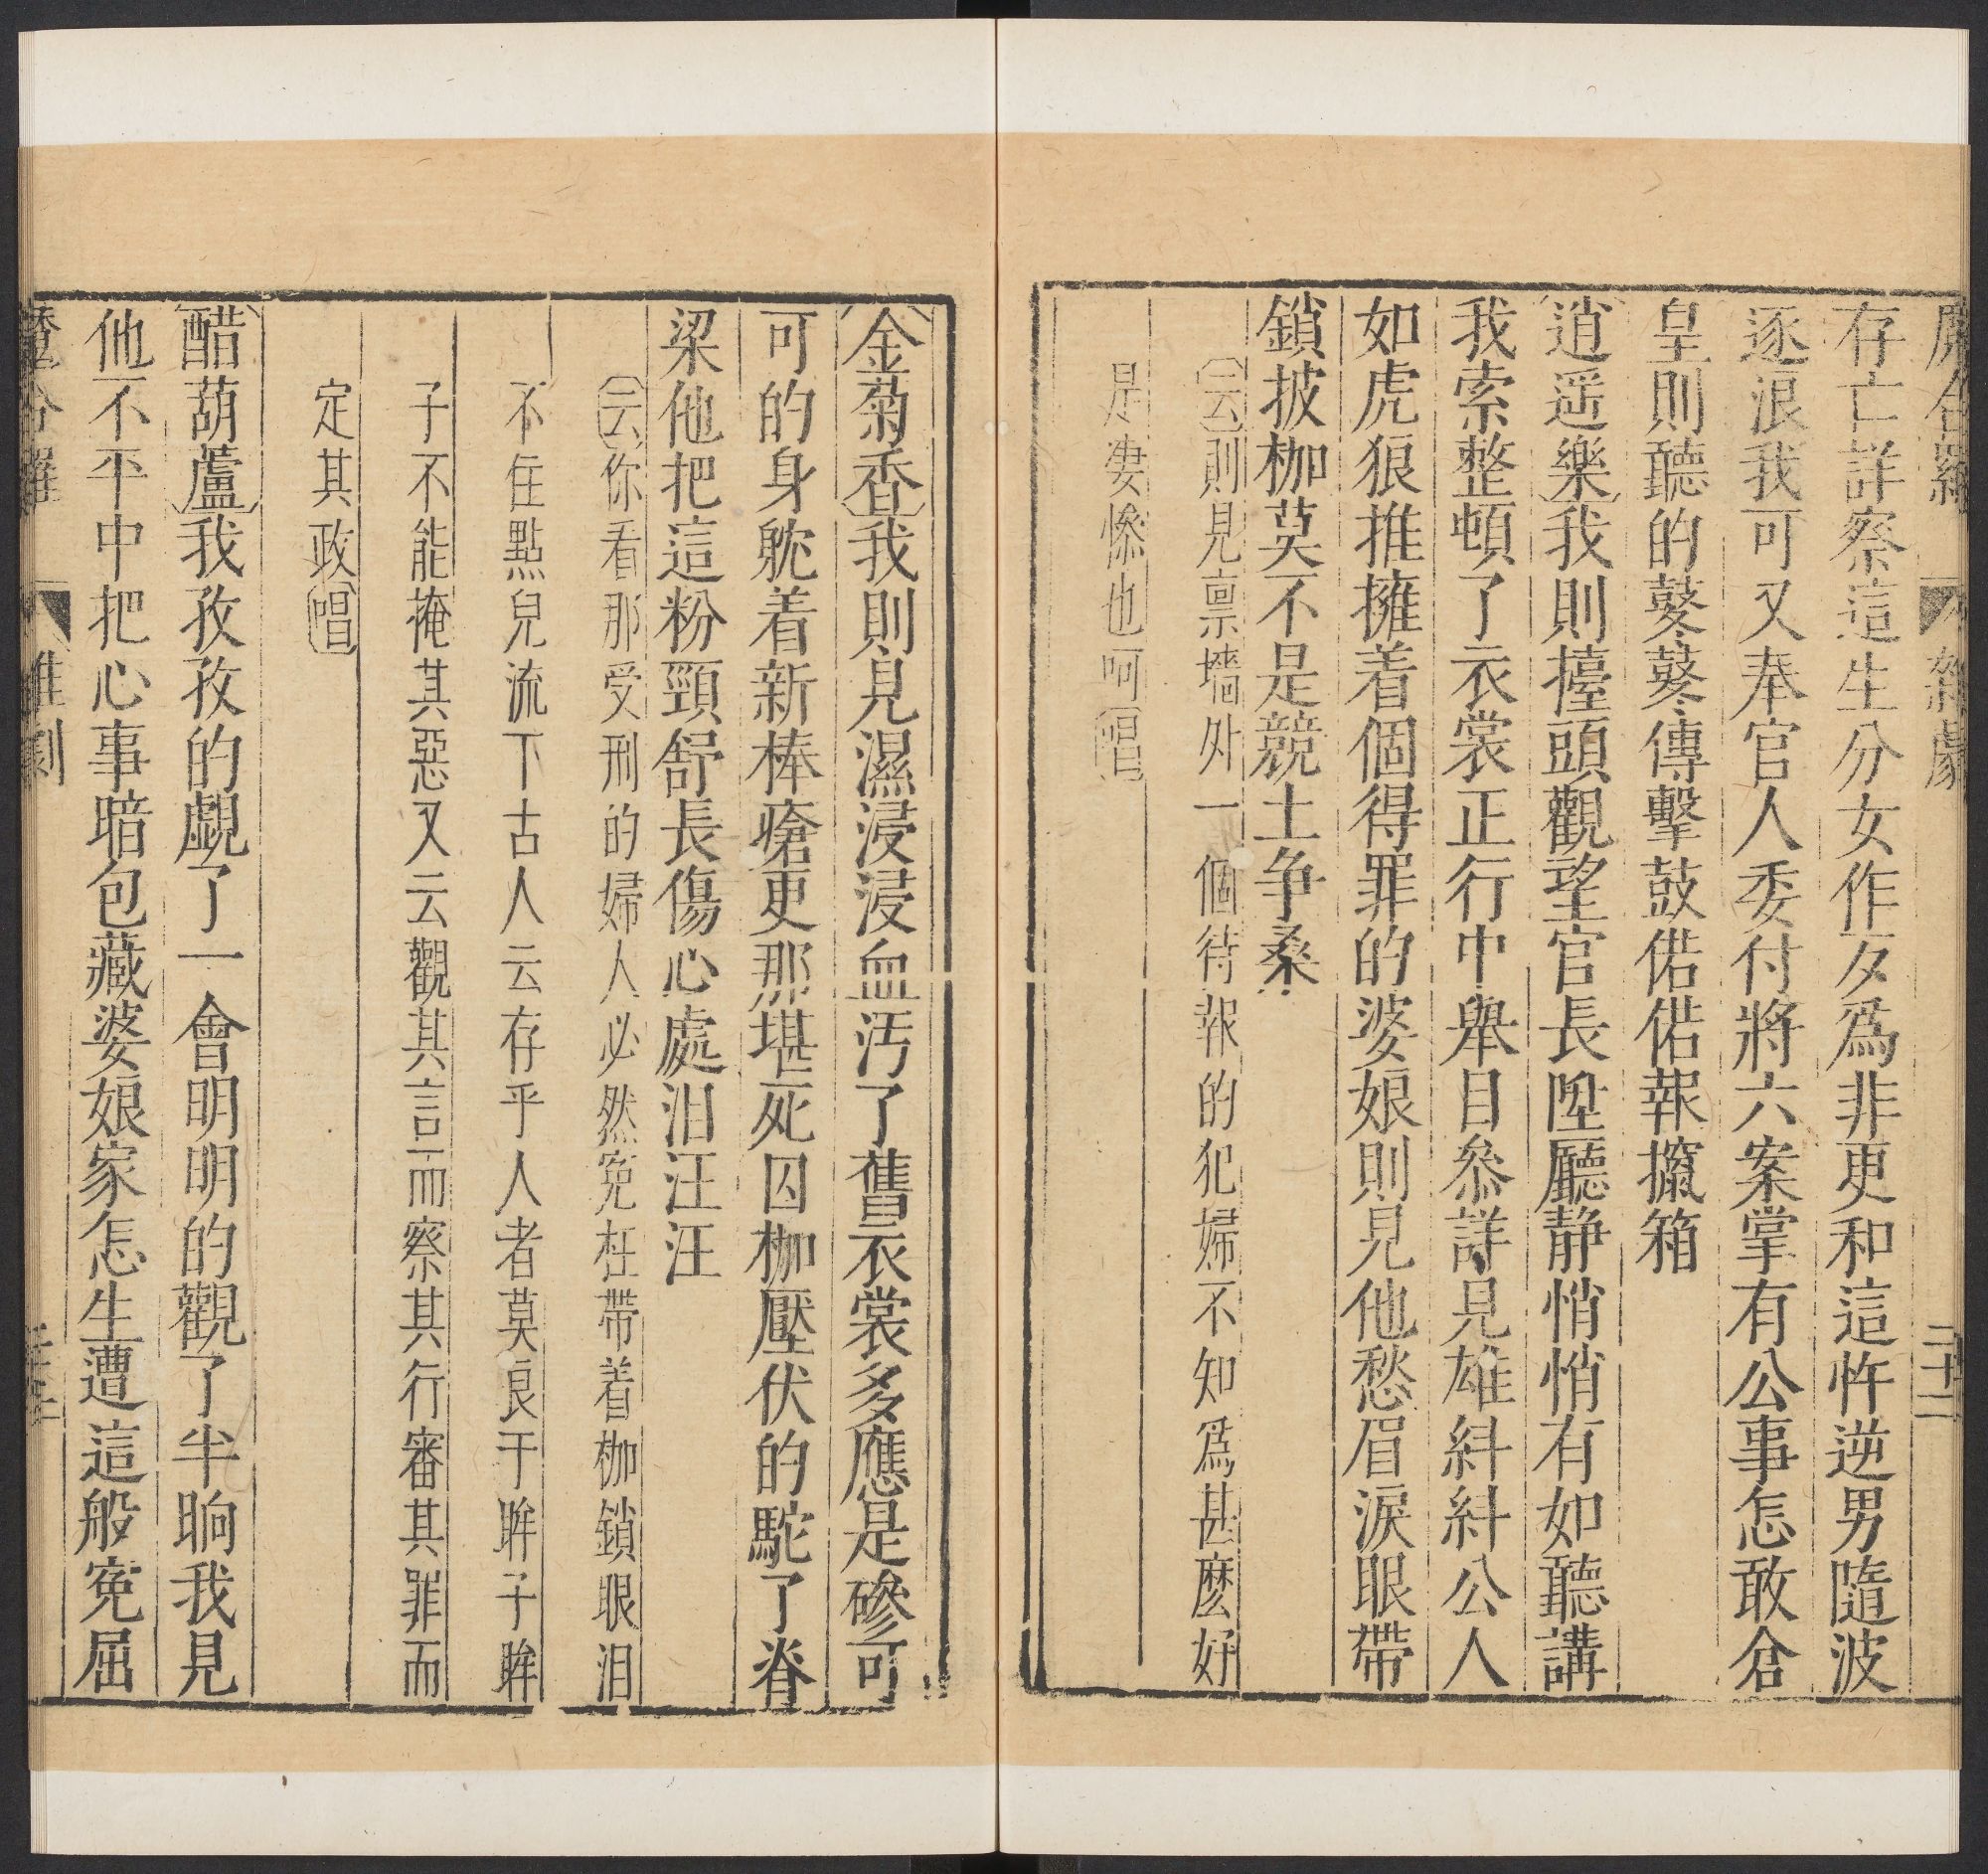 魔合羅 雜劇 二十二
存亡詳察這生分女作歹爲非更和這忤逆男隨波
逐浪我可又奉官人委付將六案掌有公事怎敢倉
皇則聽的鼕鼕傳擊鼓偌偌報攛箱
逍遥樂我則擡頭觀望官長陞廳静悄悄有如聽講
我索整頓了衣裳正行中舉目叅詳見雄糾糾公人
如虎狼推擁着個得罪的婆娘則見他愁眉淚眼帶
鎖披枷莫不是競土争桑
云則見禀墻外一個待報的犯婦不知爲甚麽好
是凄慘也呵唱
金菊香我則見濕浸浸血汚了舊衣裳多應是磣可
可的身躭着新棒瘡更那堪死囚枷壓伏的駝了脊
梁他把這粉頸舒長傷心處泪汪汪
云你看那受刑的婦人必然寃枉帶着枷鎖眼泪
不住點兒流下古人云存乎人者莫良于眸子眸
子不能掩其惡又云觀其言而察其行審其罪而
定其政唱
醋葫蘆我孜孜的覷了一會明明的觀了半晌我見
他不平中把心事暗包藏婆娘家怎生遭這般寃屈